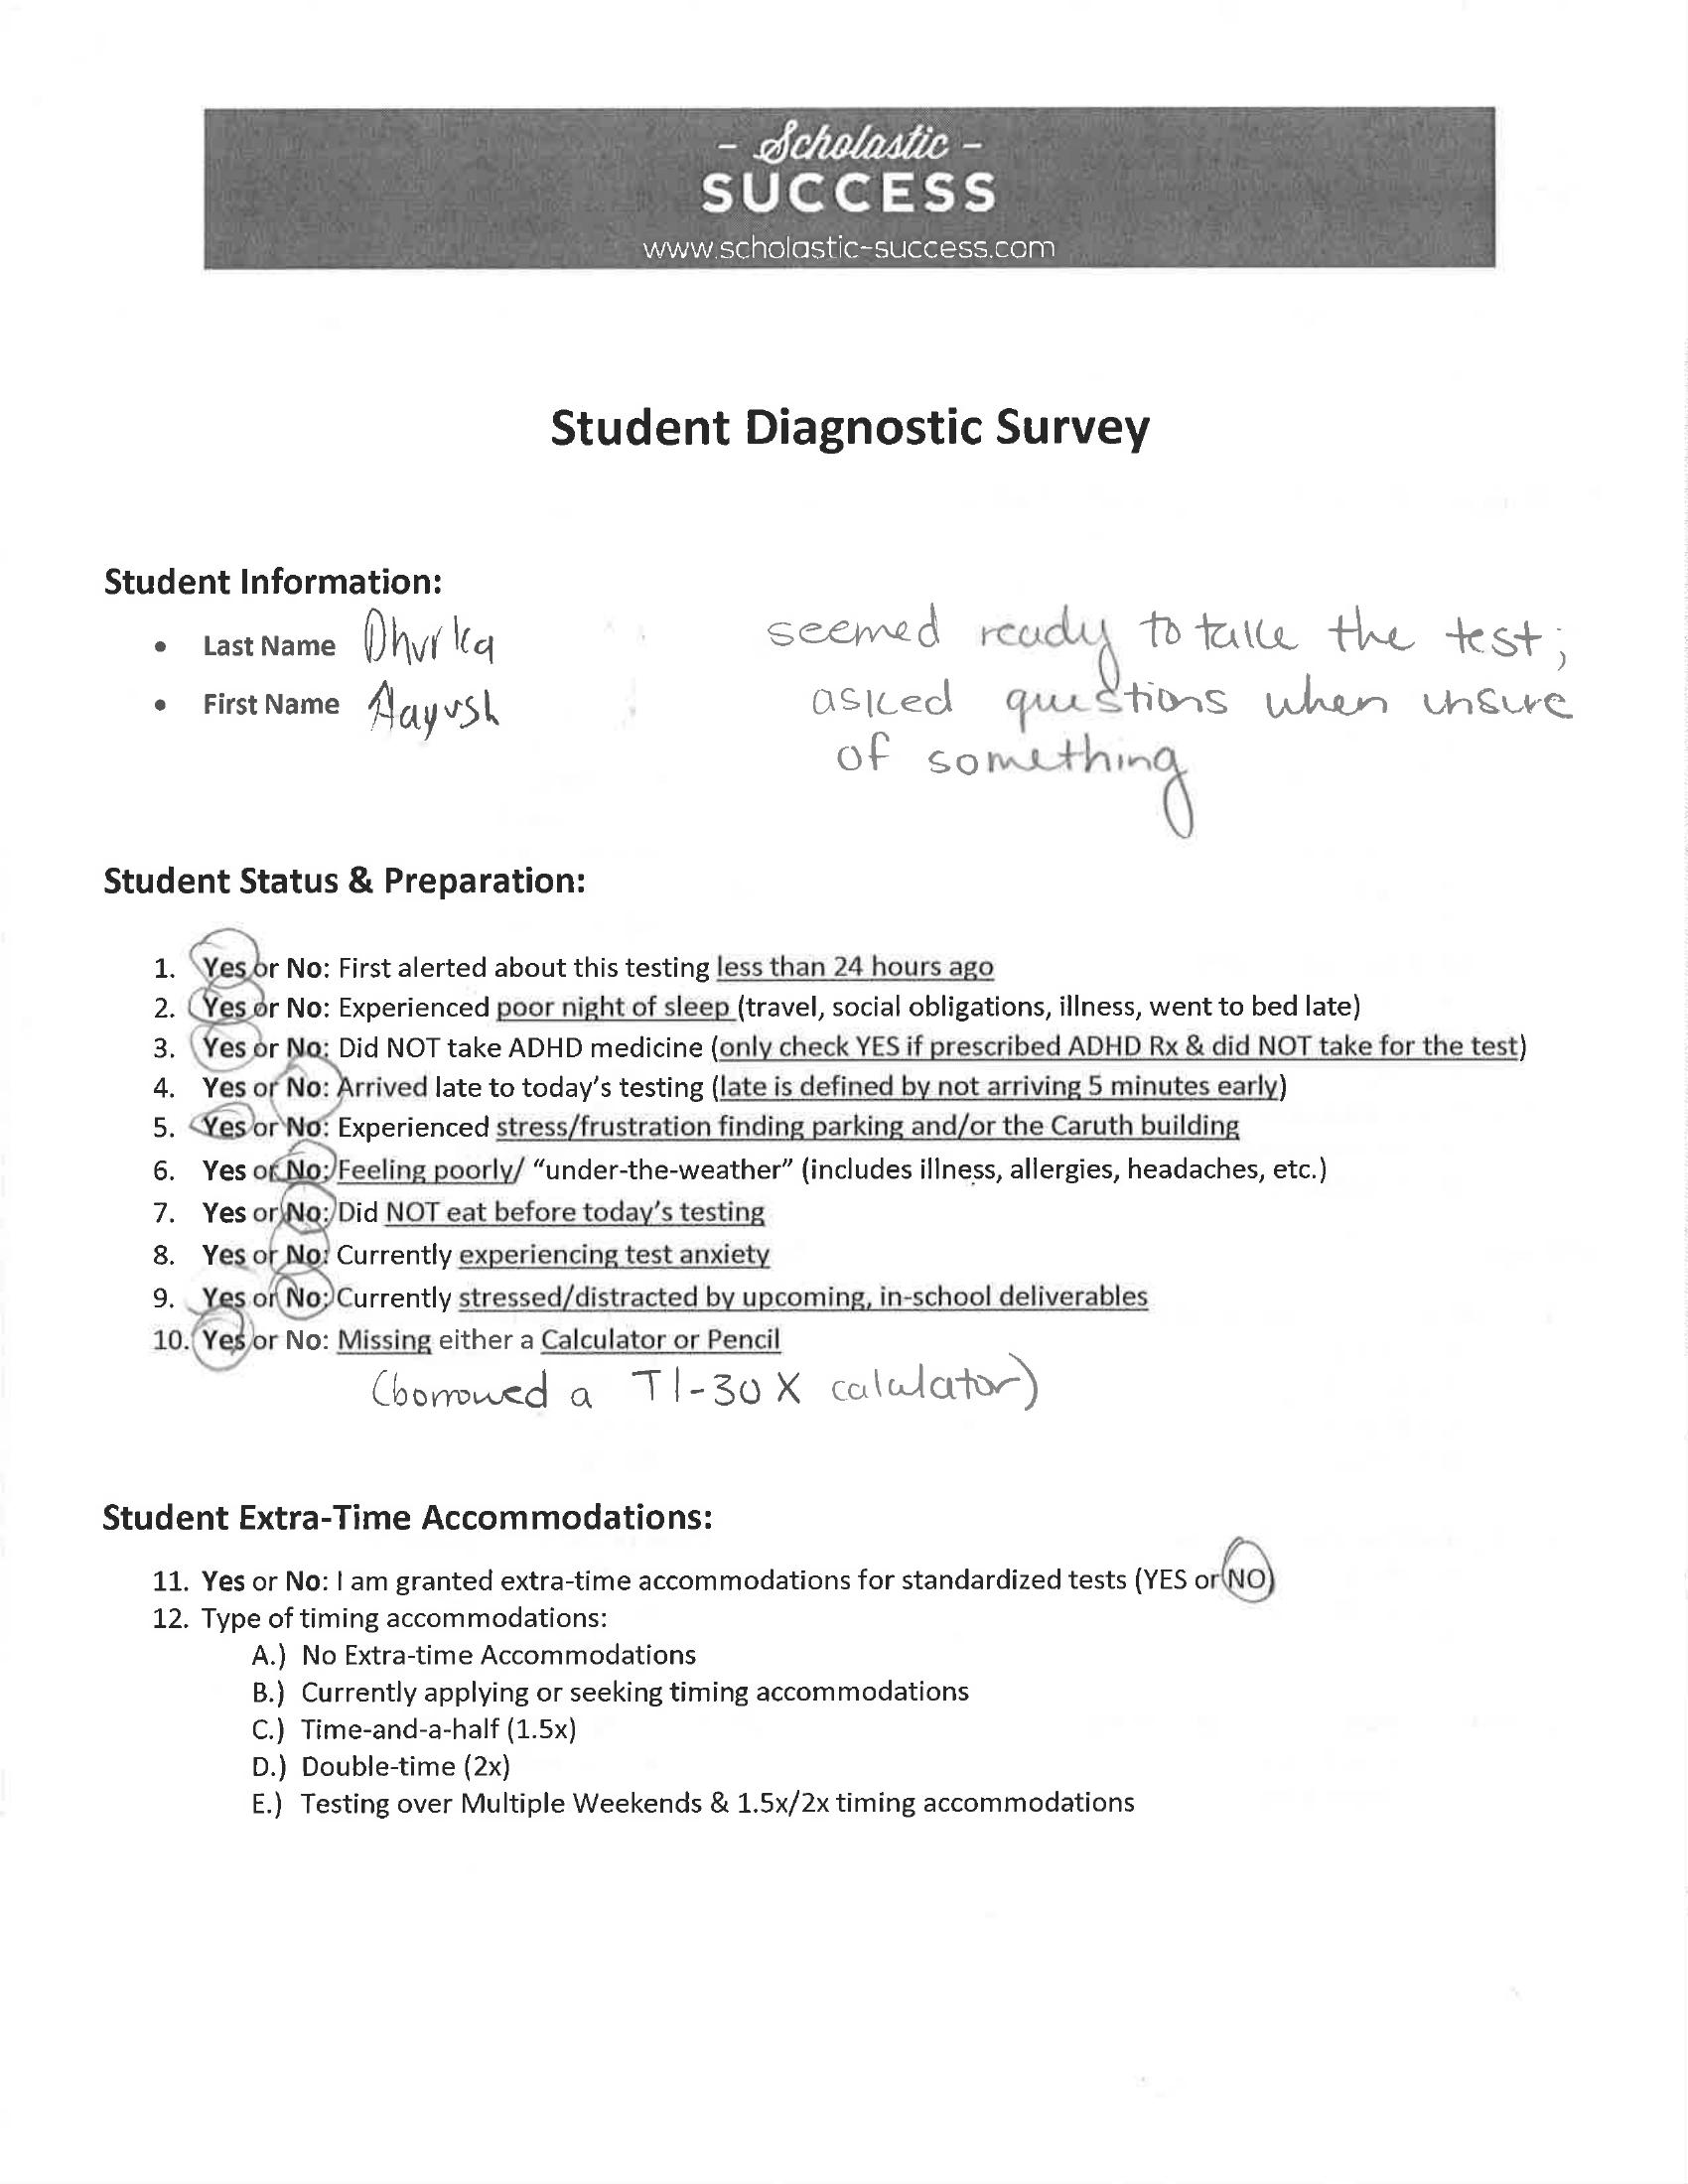 - Scholastic -
SUCCESS
www.scholastic-success.com
Student Diagnostic Survey
Student Information:
• Last Name Dhurka
• First Name Aayush
seemed ready to take the test;
asked questions when unsure
of something
Student Status & Preparation:
1. Yes or No: First alerted about this testing less than 24 hours ago
2. Yes or No: Experienced poor night of sleep (travel, social obligations, illness, went to bed late)
3. Yes or No: Did NOT take ADHD medicine (only check YES if prescribed ADHD Rx & did NOT take for the test)
4. Yes or No: Arrived late to today's testing (late is defined by not arriving 5 minutes early)
5. Yes or No: Experienced stress/frustration finding parking and/or the Caruth building
6. Yes or No: Feeling poorly/ “under-the-weather” (includes illness, allergies, headaches, etc.)
7. Yes or No: Did NOT eat before today's testing
8. Yes or No: Currently experiencing test anxiety
9. Yes or No: Currently stressed/distracted by upcoming, in-school deliverables
10. Yes or No: Missing either a Calculator or Pencil
(borrowed a TI-30X calulator)
Student Extra-Time Accommodations:
11. Yes or No: I am granted extra-time accommodations for standardized tests (YES or NO)
12. Type of timing accommodations:
A.) No Extra-time Accommodations
B.) Currently applying or seeking timing accommodations
C.) Time-and-a-half (1.5x)
D.) Double-time (2x)
E.) Testing over Multiple Weekends & 1.5x/2x timing accommodations